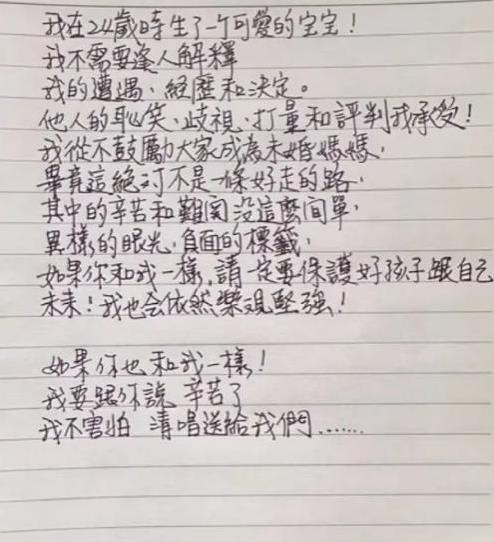 我在24歲時生了一个可愛的宝宝！
我不需要逢人解釋
我的遭遇、經歷和決定。
他人的恥笑、歧視、打量和評判我承受！
我從不鼓勵大家成為未婚媽媽，
畢竟這絕对不是一條好走的路，
其中的辛苦和難関没這麼间單，
異樣的眼光，負面的標籤，
如果你和我一樣，請一定要保護好孩子跟自己
未来！我也会依然樂观堅強！
如果你也和我一樣！
我要跟你說 辛苦了
我不害怕 清唱送給我們……